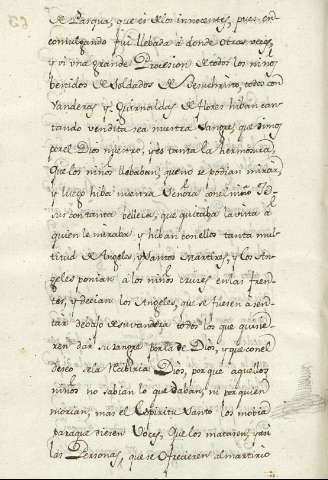 de Pasqua, que es de los innocentes, pues en
comulgando fui llebada á donde otras veces,
y vi una grande Procesion de todos los niños
bestidos de Soldados de Jesuchristo, todos con
vanderas y Guirnaldas de flores hiban can-
tando vendita sea nuestra Sangre, que dimos
por el Dios nuestro, y es tanta la hermosura
Que los niños llebaban, que no se podian mirar,
y luego hiba nuestra Señora con el niño Je-
sus con tanta belleza, que quitaba la vista á
quien le miraba y hiban con ellos tanta mul-
titud de Angeles, y Santos Martires, y los An-
geles ponian á los niños cruces en las fren-
tes, y decian los Angeles, que se fuesen á sen-
tar debajo de su vandera todos los que quisie-
ren dar su sangre por la de Dios, y que con el
deseo se la recibiria Dios, por que aquellos
niños no sabian lo que daban, ni por quien
morian, mas el Espiritu Santo los movia
para que diesen Voces, Que los matasen, y así
las Personas, que se ofrecieren al martirio